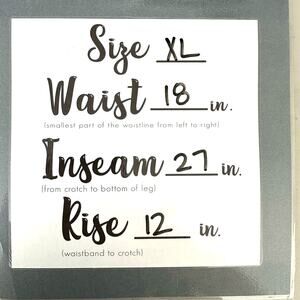 Size XL
Waist 18 in.
(smallest part of the waistline from left to right)
Inseam 27 in.
(from crotch to bottom of leg)
Rise 12 in.
(waistband to crotch)